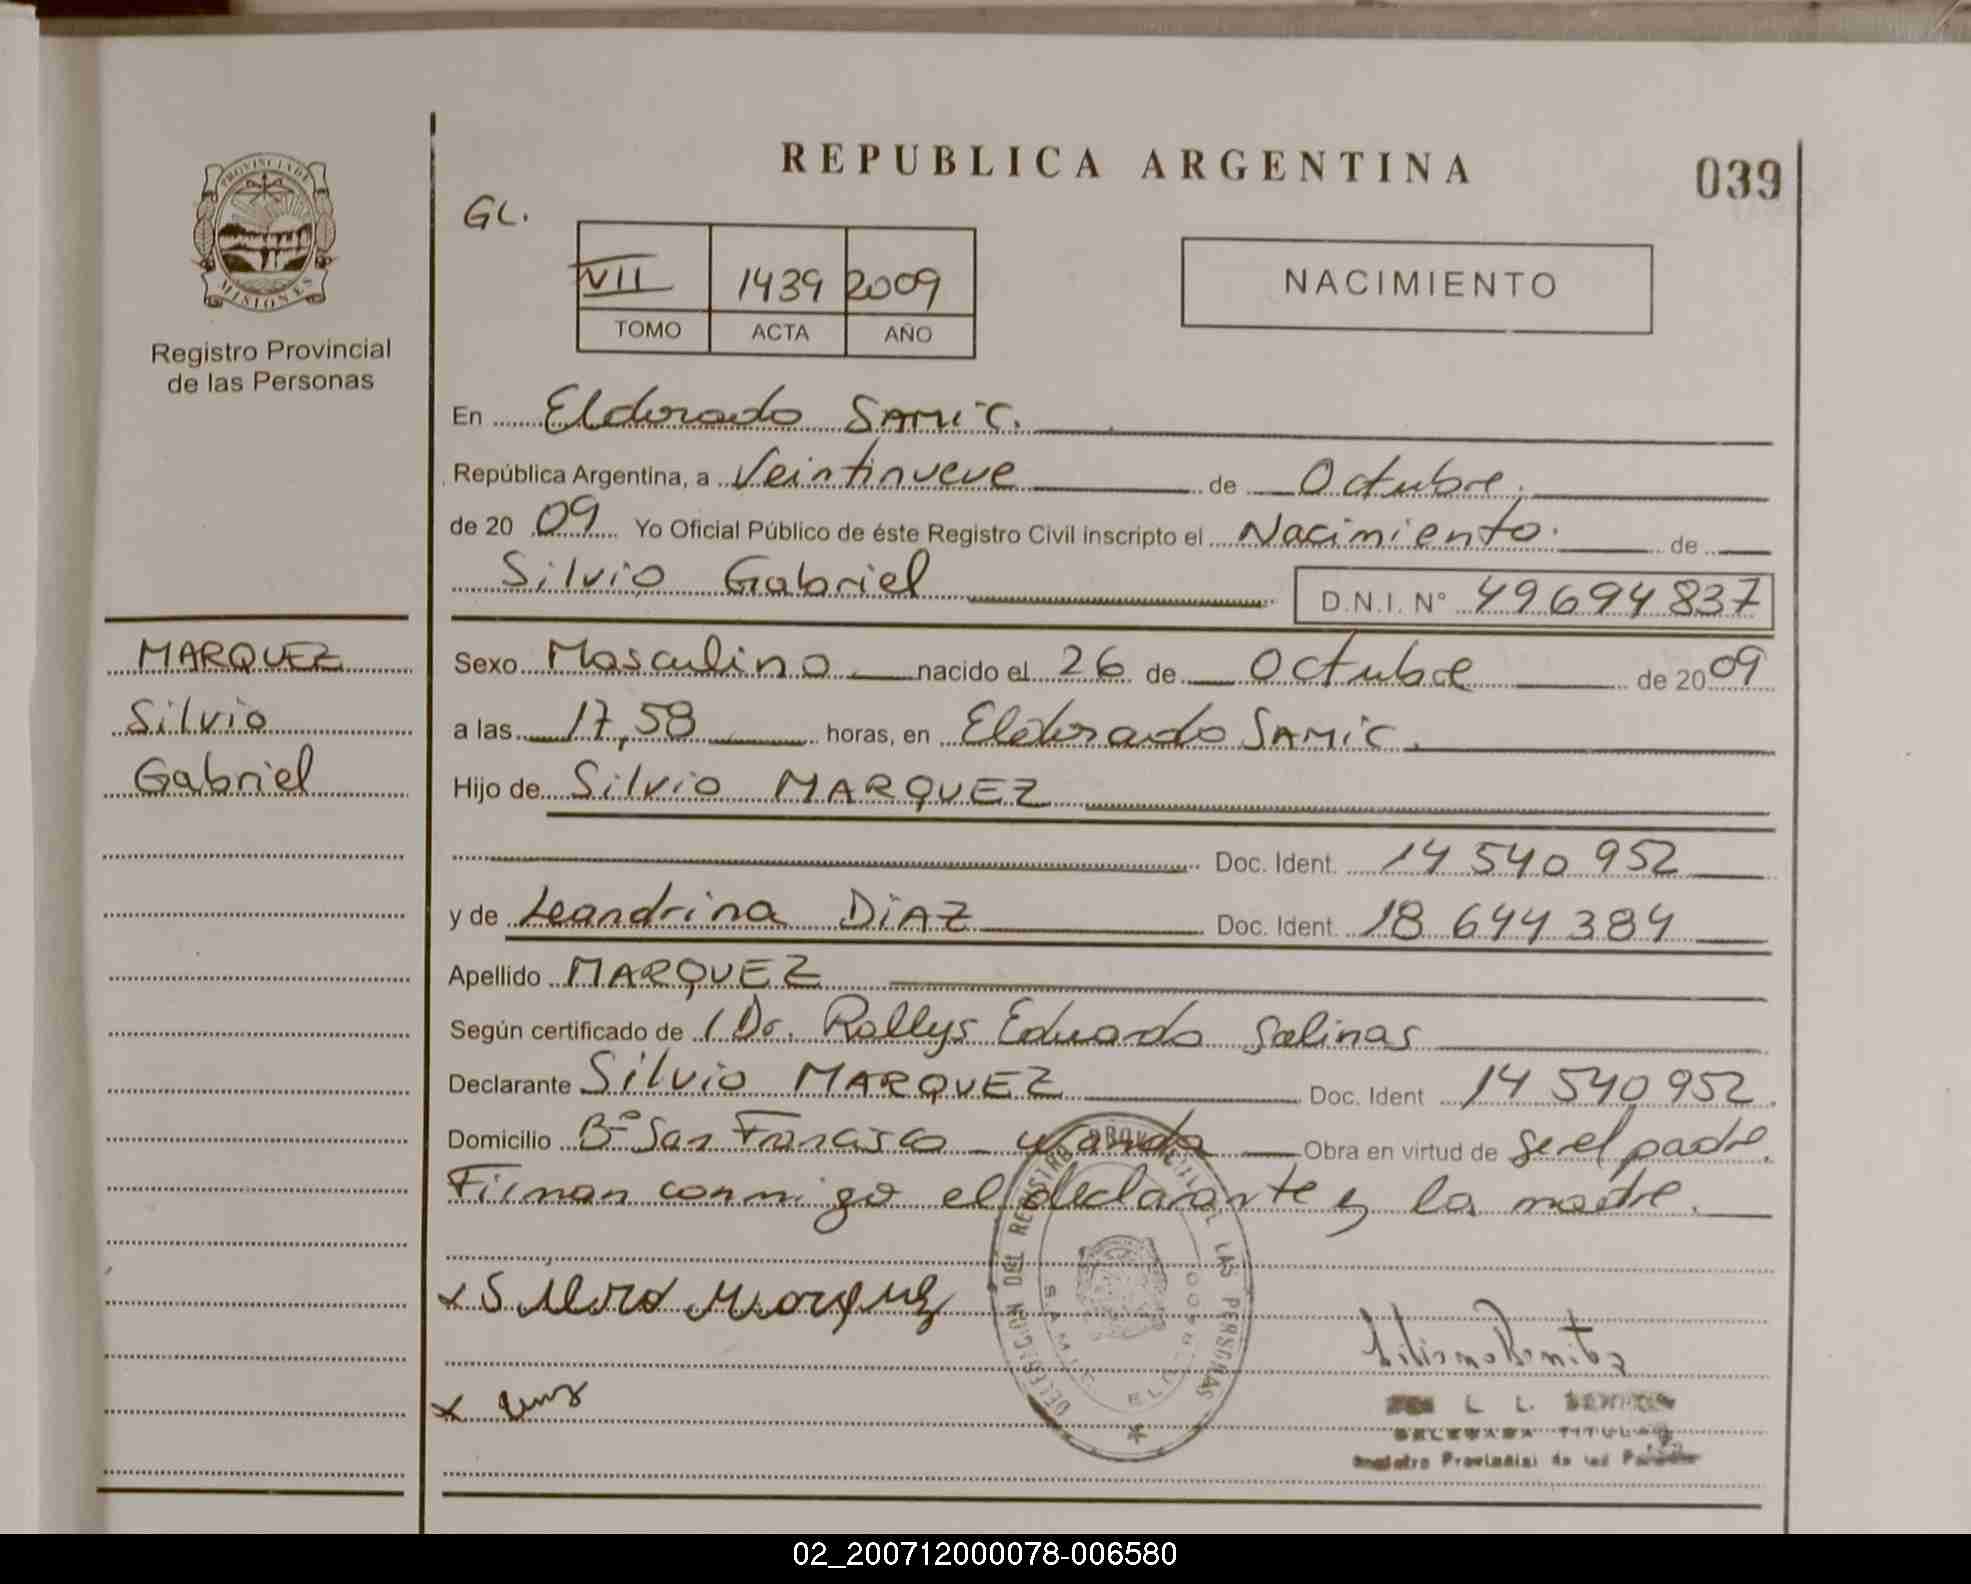 REPUBLICA ARGENTINA
039
PROVINCIA DE
MISIONES
Registro Provincial
de las Personas
GL.
VII 1439 2009
TOMO ACTA AÑO
NACIMIENTO
En Eldorado SAMIC.
República Argentina, a Veintinueve de Octubre.
de 2009 Yo Oficial Público de éste Registro Civil inscripto el Nacimiento. de
Silvio Gabriel D.N.I. N° 49694837
MARQUEZ
Silvio
Gabriel
Sexo Masculino nacido el 26 de Octubre de 2009
a las 17,58 horas, en Eldorado SAMIC.
Hijo de Silvio MARQUEZ
Doc. Ident. 14 540 952
y de Leandrina DIAZ Doc. Ident. 18 644 384
Apellido MARQUEZ
Según certificado de / Dr. Rollys Eduardo Salinas
Declarante Silvio MARQUEZ Doc. Ident 14 540 952.
Domicilio Bº San Francisco - Wanda Obra en virtud de ser el padre.
Firman conmigo el declarante y la madre.
x Silvio Marquez
x
DELEGACION DEL REGISTRO PROVINCIAL LAS PERSONAS
SAMIC ELDORADO
Liliana Benitez
L. BENITEZ
DELEGADA TITULAR
Registro Provincial de las Personas
02_200712000078-006580